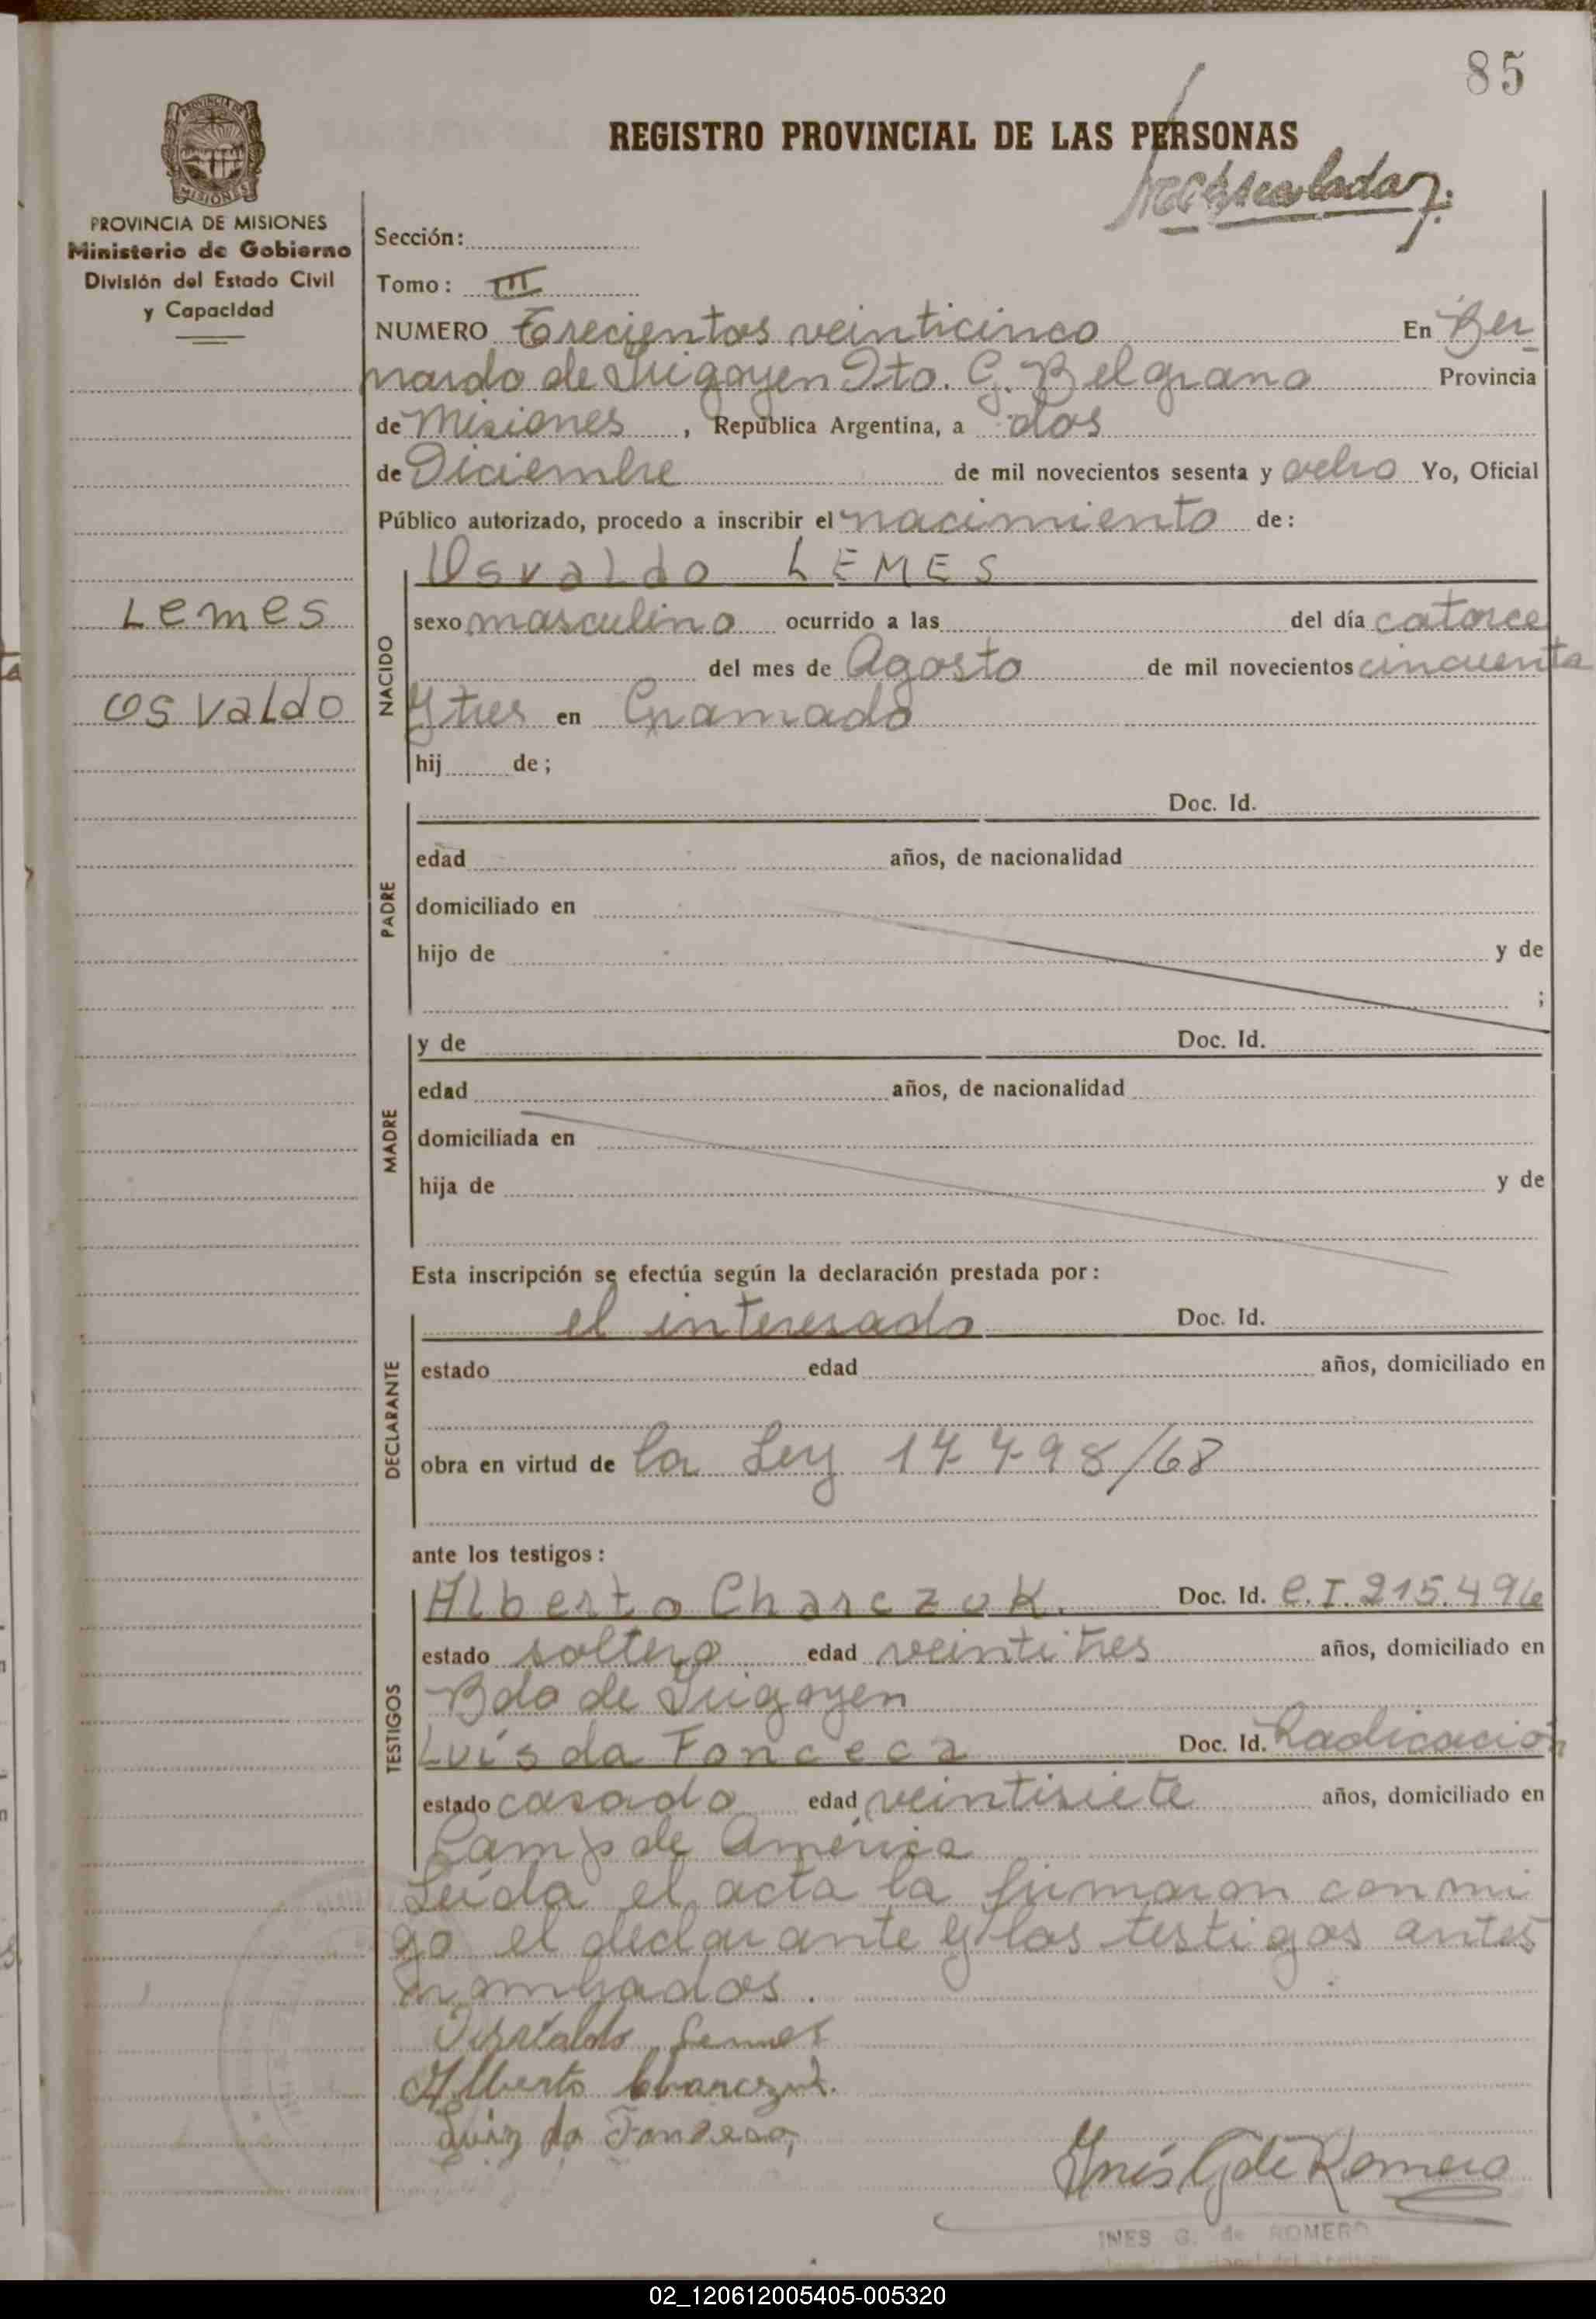 85
REGISTRO PROVINCIAL DE LAS PERSONAS
PROVINCIA DE MISIONES
Ministerio de Gobierno
División del Estado Civil
y Capacidad
Sección:
Tomo: III
NUMERO Trecientos veinticinco En Ber
nardo de Irigoyen Dto. G. Belgrano Provincia
de Misiones, República Argentina, a dos
de Diciembre de mil novecientos sesenta y ocho Yo, Oficial
Público autorizado, procedo a inscribir el nacimiento de:
Osvaldo LEMES
Lemes
Osvaldo
NACIDO
sexo masculino ocurrido a las del día catorce
del mes de Agosto de mil novecientos cincuenta
y tres en Gramado
hij de;
PADRE
Doc. Id.
edad años, de nacionalidad
domiciliado en
hijo de y de
;
MADRE
y de Doc. Id.
edad años, de nacionalidad
domiciliada en
hija de y de
Esta inscripción se efectúa según la declaración prestada por:
DECLARANTE
el interesado Doc. Id.
estado edad años, domiciliado en
obra en virtud de la Ley 17498/68
ante los testigos:
TESTIGOS
Alberto Charczuk. Doc. Id. C.I. 215.496
estado soltero edad veintitres años, domiciliado en
Bdo de Irigoyen
Luis da Fonceca Doc. Id. Radicación
estado casado edad veintisiete años, domiciliado en
Camp de América
Leída el acta la firmaron conmi
go el declarante y los testigos antes
nombrados.
Osvaldo Lemes
Alberto Charczuk.
Luiz da Fonseca
Inés G de Romero
INES G. de ROMERO
02_120612005405-005320